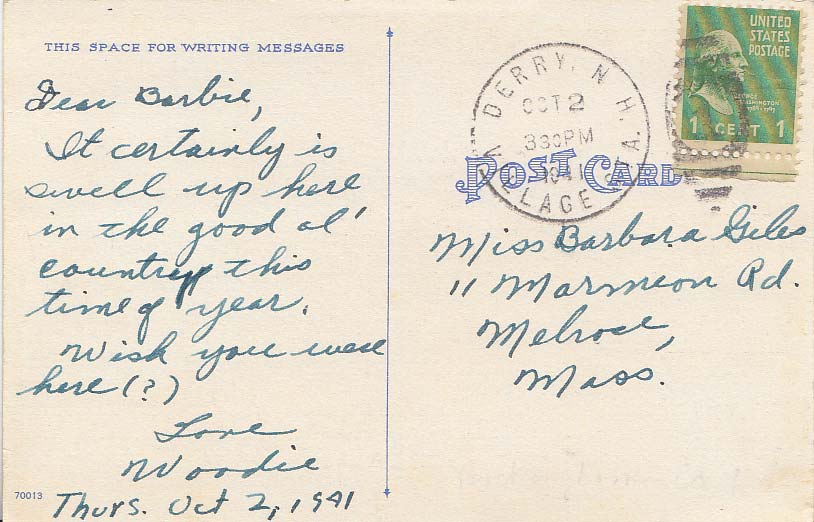 THIS SPACE FOR WRITING MESSAGES
Dear Barbie,
It certainly is
swell up here
in the good ol'
country this
time of year.
Wish you were
here (?)
Love
Woodie
Thurs. Oct 2, 1941
70013
UNITED
STATES
POSTAGE
GEORGE
WASHINGTON
1789-1797
1 CENT 1
DERRY, N. H.
OCT 2
330PM
1941
VILLAGE STA.
POST CARD
Miss Barbara Giles
11 Marmion Rd.
Melrose,
Mass.